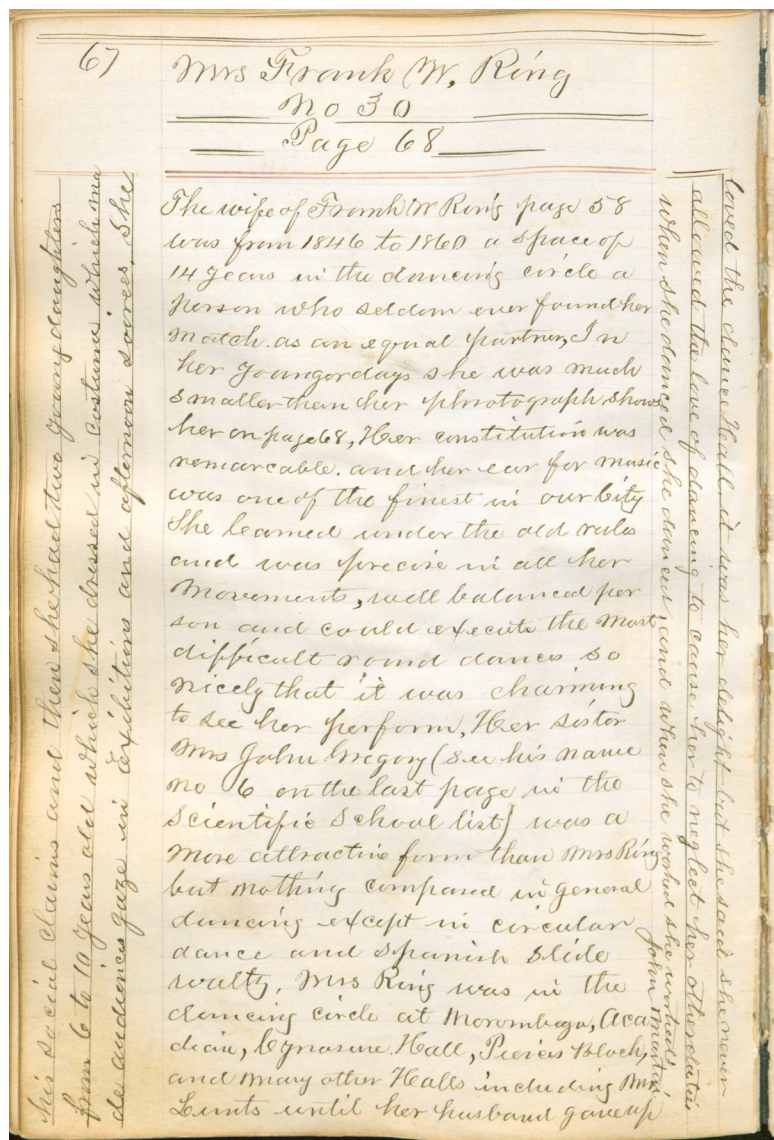 67
Mrs Frank W. Ring
No 30
Page 68
The wife of Frank W Ring page 58
was from 1846 to 1860 a space of
14 years in the dancing circle a
person who seldom ever found her
match. as an equal partner, In
her younger days she was much
smaller than her photograph shows
her on page 68, Her constitution was
remarcable. and her ear for music
was one of the finest in our City
She learned under the old rules
and was precise in all her
Movements, well balanced per
son and could execute the most
difficult round dances so
nicely that it was charming
to see her perform, Her sister
Mrs John Gregory (see his name
no 6 on the last page in the
Scientific School list) was a
more attractive form than Mrs Ring
but nothing compared in general
dancing except in circular
dance and spanish slide
waltz, Mrs Ring was in the
dancing circle at Morombega, Aca
dian, Cynasure Hall, Pierces Block,
and many other Halls including Mr
Lunts until her husband gave up
his social claims and then she had two young daughters
from 6 to 10 years old which she dressed in costume which ma
de audiences gaze in exibitions and afternoon scores. She
loved the dance Hall it was her delight but she said she never
allowed the love of dancing to cause her to neglect her other duties
when she danced she danced, and when she worked she worked
John Martin